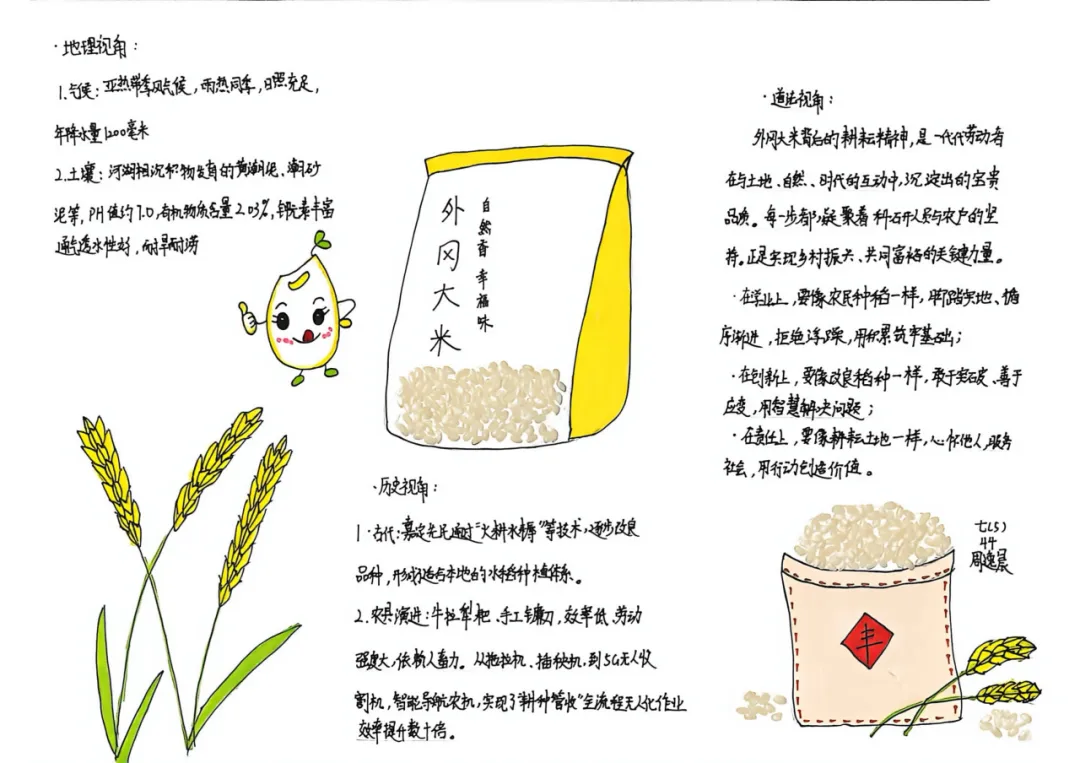 ·地理视角：
1.气候：亚热带季风气候，雨热同季，日照充足，
年降水量1200毫米
2.土壤：河湖相沉积物发育的黄潮泥、潮砂
泥等，PH值约7.0，有机物质含量2.03%，钾元素丰富
通气透水性好，耐旱耐涝
外冈大米
自然香 幸福味
·历史视角：
1.古代：嘉定先民通过“火耕水耨”等技术，逐步改良
品种，形成适合本地的水稻种植体系。
2.农具演进：牛拉犁耙、手工镰刀，效率低、劳动
强度大，依赖人畜力。从拖拉机、插秧机，到5G无人收
割机，智能导航农机，实现了“耕种管收”全流程无人化作业
效率提升数十倍。
·道法视角：
外冈大米背后的耕耘精神，是一代代劳动者
在与土地、自然、时代的互动中，沉淀出的宝贵
品质。每一步都凝聚着科研人员与农户的坚
持。正是实现乡村振兴、共同富裕的关键力量。
·在学业上，要像农民种稻一样，脚踏实地、循
序渐进，拒绝浮躁，用积累筑牢基础；
·在创新上，要像改良稻种一样，敢于突破、善于
应变，用智慧解决问题；
·在责任上，要像耕耘土地一样，心怀他人，服务
社会，用行动创造价值。
七(5)
44
周逸晨
丰